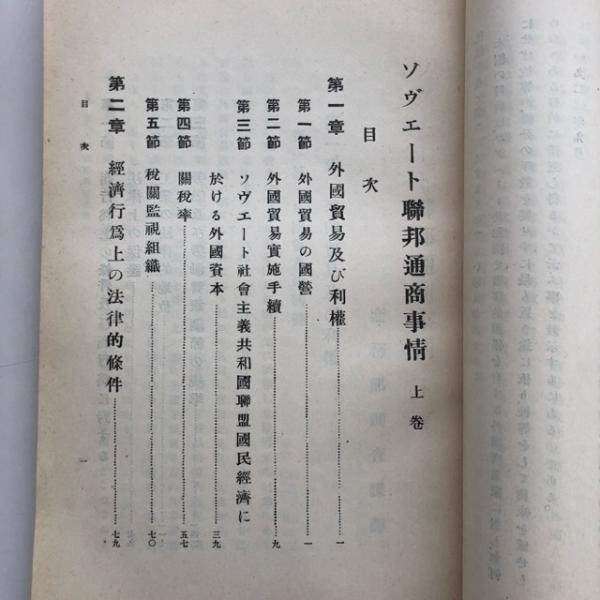 ソヴエート聯邦通商事情 上卷
目次
第一章 外國貿易及び利權……一
第一節 外國貿易の國營……一
第二節 外國貿易實施手續……九
第三節 ソヴエート社會主義共和國聯盟國民經濟に
於ける外國資本……三九
第四節 關稅率……五七
第五節 稅關監視組織……七〇
第二章 經濟行爲上の法律的條件……七九
目次
一